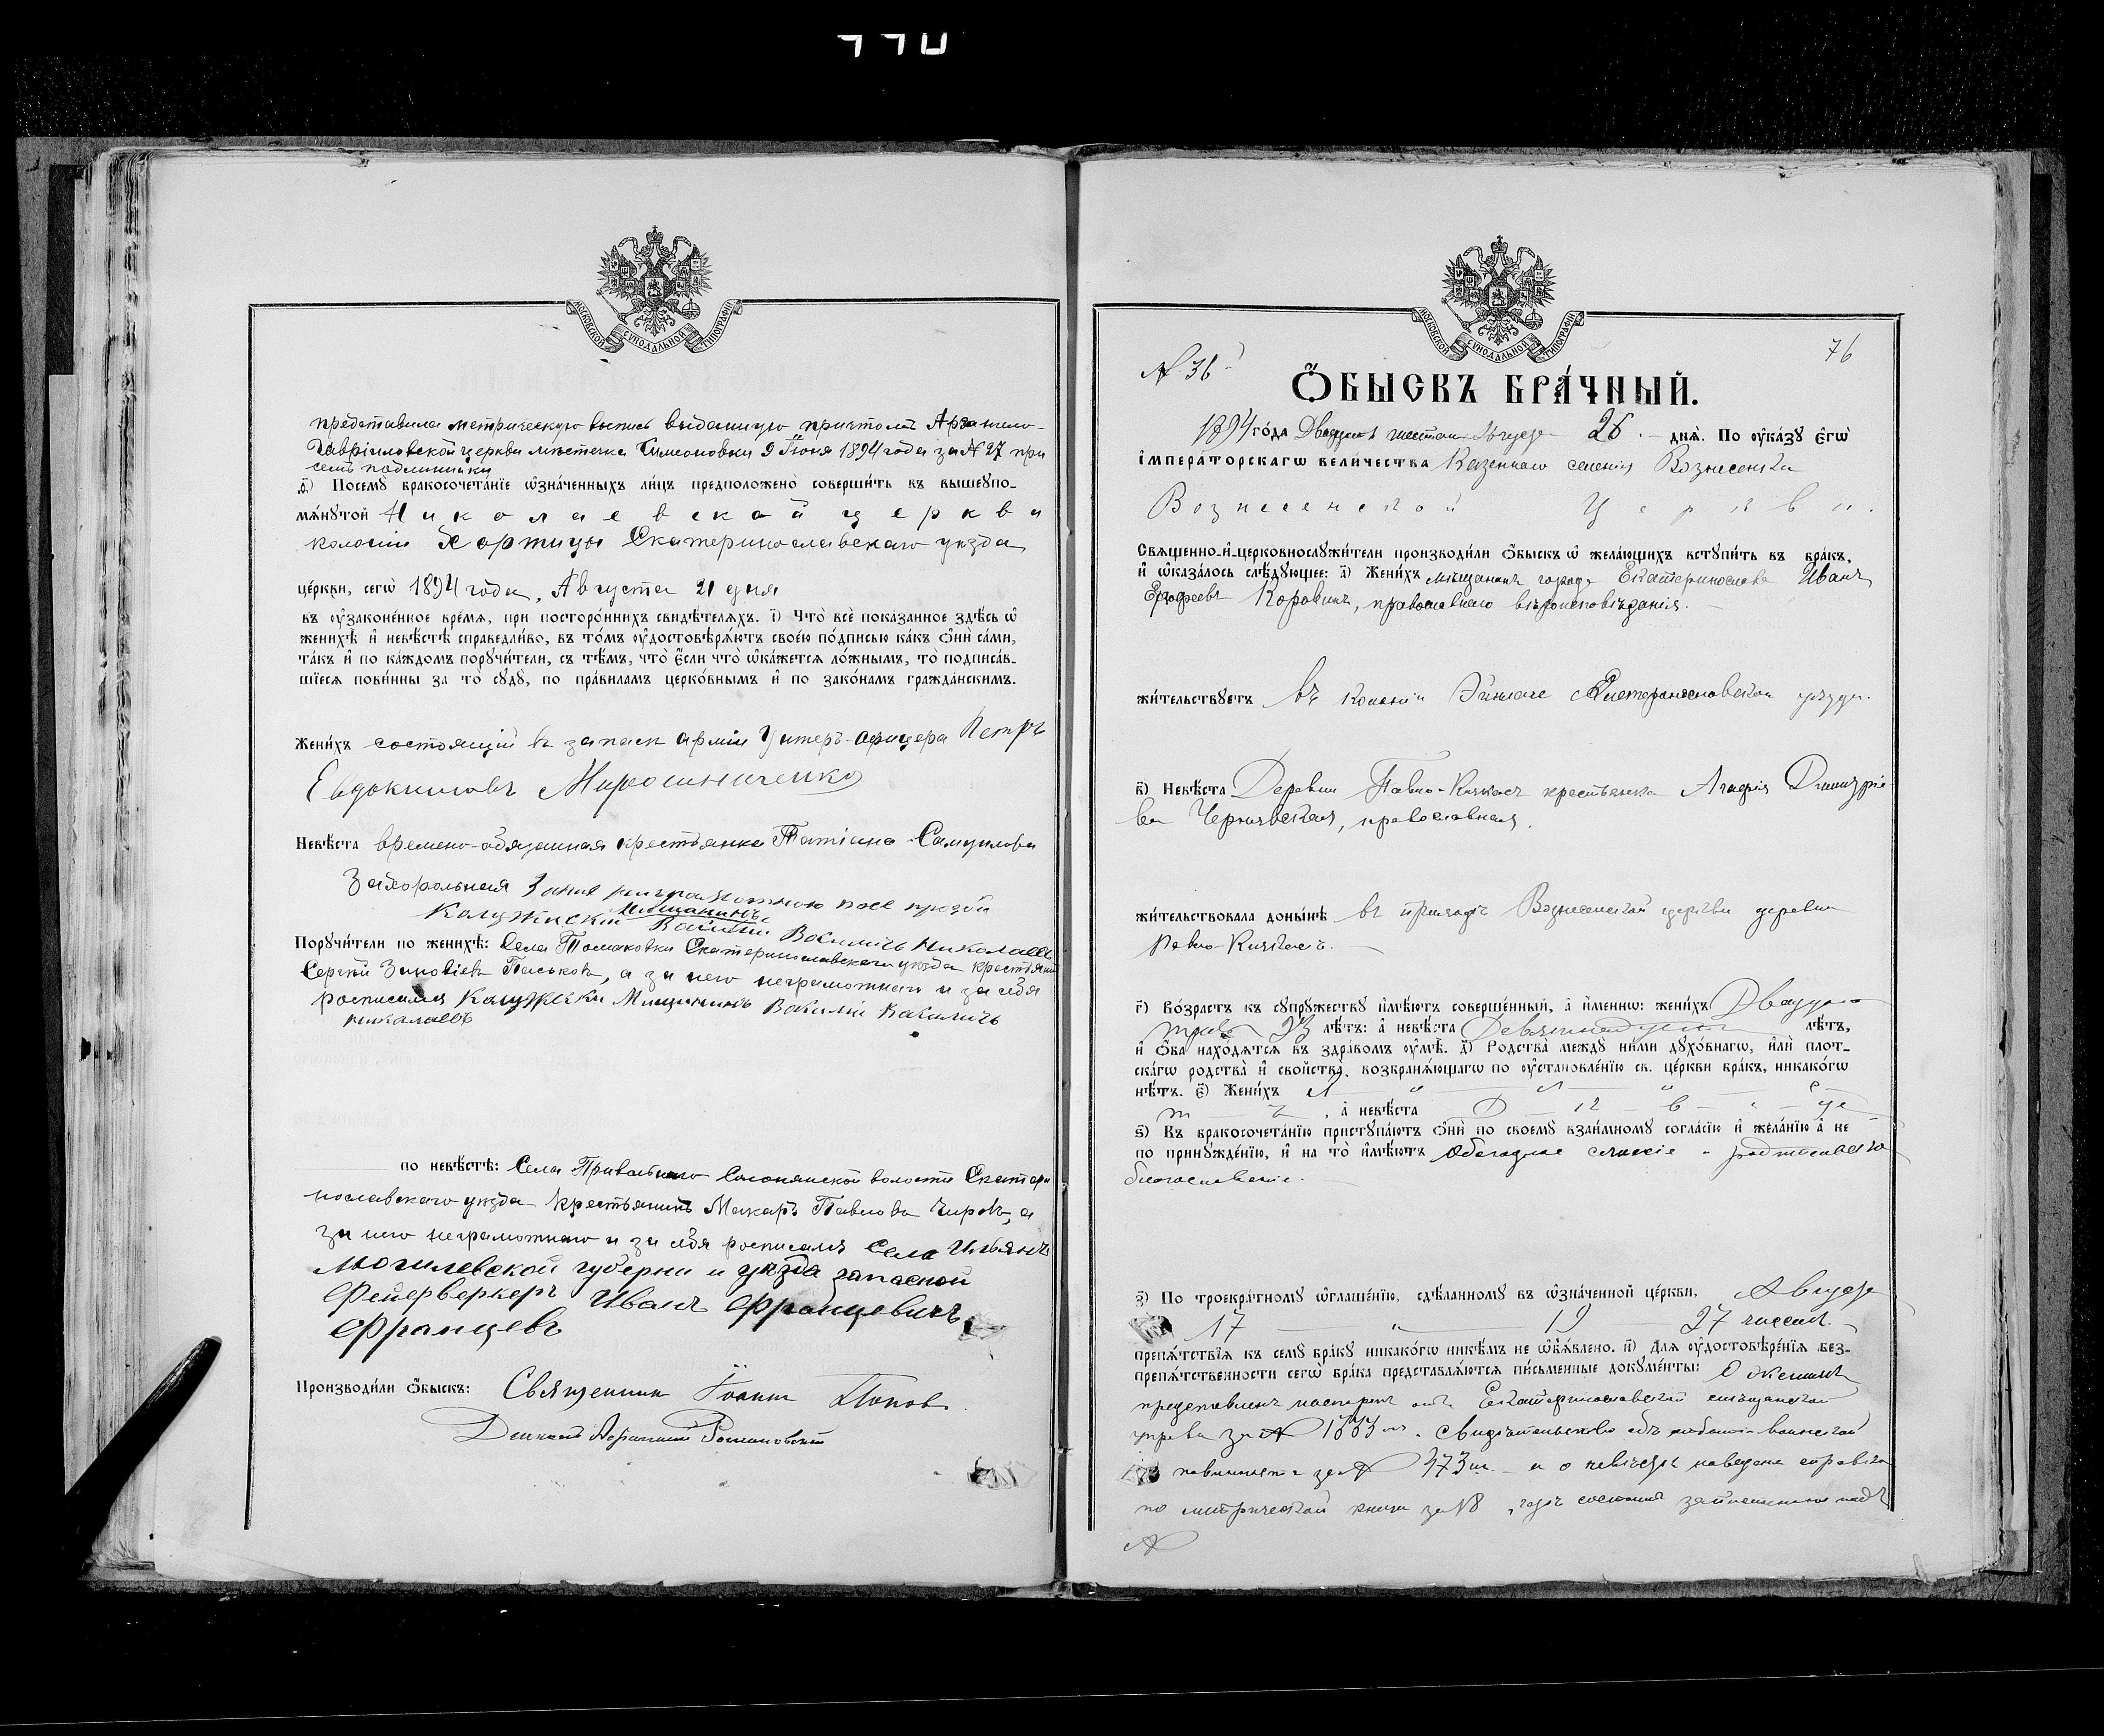 МОСКОВСКОЙ СѴНОДАЛЬНОЙ ТИПОГРАФІИ
представила метрическую выпись выданную причтомъ Архангело-
Гавріиловской церкви мѣстечка Симеоновки 9 Іюня 1894 года за № 27 при
семъ подлинники
д҃і) Посемꙋ бракосочета́нїе ѡзна́ченныхъ ли́цъ предположено̀ соверши́ть въ вышеꙋпо-
мѧ́нꙋтой Николаевской церкви
колоніи Хортицы Екатеринославскаго уѣзда
це́ркви, сегѡ̀ 1894 года, Августа 21 дня
въ ᲂу҆зако́ненное вре́мѧ, при посторо́ннихъ свидѣ́телѧхъ. і҃) Что̀ всѐ пока́занное здѣ́сь ѡ҆
женихѣ̀ и҆ невѣ́стѣ справедли́во, въ то́мъ ᲂу҆достовѣрѧ́ютъ свое́ю по́дписью ка́къ ѻ҆нѝ са́ми,
та́къ и҆ по ка́ждомъ порꙋчи́тели, съ тѣ́мъ, что̀ є҆́сли что̀ ѡ҆ка́жетсѧ ло́жнымъ, то̀ подписа́в-
шїесѧ пови́нны за то̀ сꙋдꙋ̀, по пра́виламъ церко́внымъ и҆ по зако́намъ гражда́нскимъ.
Жени́хъ состоящій въ запасѣ арміи Унтеръ-офицера Петръ
Евдокимовъ Мирошниченко
Невѣ́ста времено-обязанная крестьянка Татіана Самуилова
Захорольная За нея неграмотною по ея прозби
Калужскій Мѣщанинъ Василій Василичь Николаевъ
Порꙋчи́тели по женихѣ̀: Села Томаковки Екатеринославскаго уѣзда крестьянинъ
Сергѣй Зиновіевъ Паськовъ, а за него неграмотнаго и за себя
росписался Калужски Мищининъ Василій Василичь
николаевъ
по невѣ́стѣ: Села Привольнаго Солонянской волости Екатери
нославскаго уѣзда Крестьянинъ Макаръ Павловъ Чировъ, а
за него неграмотнаго и за себя росписался Села
Могилевской губерни и уѣзда запасной
Фейерверкеръ Иванъ Францевичъ
Францевъ
Производи́ли ѻ҆́быскъ: Священникъ Іоаннъ Попов
МОСКОВСКОЙ СѴНОДАЛЬНОЙ ТИПОГРАФІИ
№ 36
76
Ѻ҆́БЫСКЪ БРА́ЧНЫЙ.
1894 го́да Двадцать шестаго Августа 26 днѧ̀. По ᲂу҆ка́зꙋ є҆гѡ̀
і҆мпера́торскагѡ вели́чества Казеннаго селенія Вознесенки
Вознесенской Церкви.
Свѧще́нно-и҆-церковнослꙋжи́тели производи́ли ѻ҆́быскъ ѡ҆ жела́ющихъ встꙋпи́ть въ бра́къ,
и҆ ѡ҆каза́лось слѣ́дꙋющее: а҃) Жени́хъ мѣщанинъ города Екатеринослава Иванъ
Ерофеевъ Коровинъ, православнаго вѣроисповѣданія.
жи́тельствꙋетъ въ колоніи Эйнлаге Екатеринославскаго уѣзда.
в҃) Невѣ́ста Деревни Павло-Кичкасъ крестьянка Агафія Димитріе-
ва Чернявская, православная.
жи́тельствовала доны́нѣ въ приходѣ Вознесенской церкви деревни
Павло-Кичкасъ.
г҃) Во́зрастъ къ сꙋпрꙋ́жествꙋ и҆мѣ́ютъ соверше́нный, а҆ и҆́меннѡ: жени́хъ Двадцати
трехъ 23 лѣ́тъ: а҆ невѣ́ста Девятнадцати лѣ́тъ,
и҆ ѻ҆́ба нахо́дѧтсѧ въ здра́вомъ ᲂу҆мѣ̀. д҃) Родства̀ междꙋ ни́ми дꙋхо́внагѡ, и҆лѝ плот-
ска́гѡ родства̀ и҆ свойства̀, возбранѧ́ющагѡ по ᲂу҆становле́нїю св. це́ркви бра́къ, никако́гѡ
нѣ́тъ. є҃) Жени́хъ холостъ, а҆ невѣ́ста Дѣвица
ѕ҃) Къ бракосочета́нїю пристꙋпа́ютъ ѻ҆нѝ по своемꙋ̀ взаи́мномꙋ согла́сїю и҆ жела́нїю а҆ не
по принꙋжде́нїю, и҆ на то̀ и҆мѣ́ютъ обоюдное согласіе и родительское
благословеніе.
з҃) По троекра́тномꙋ ѡ҆глаше́нїю, сдѣ́ланномꙋ въ ѡ҆зна́ченной це́ркви, Августа
17 19 27 чиселъ.
препѧ́тствїѧ къ семꙋ̀ бра́кꙋ никако́гѡ никѣ́мъ не ѡ҆б̾ѧ́влено. и҃) Длѧ̀ ᲂу҆достовѣре́нїѧ без-
препѧ́тственности сегѡ̀ бра́ка представлѧ́ютсѧ пи́сьменные докꙋме́нты: О женихѣ
представленъ паспортъ отъ Екатеринославской мѣщанской
управы за № 1883 . Свидѣтельство объ воинской
повинности за № 373 и о невѣстѣ наведена справка
по метрической книги за 18 годъ состоитъ записанною подъ
№